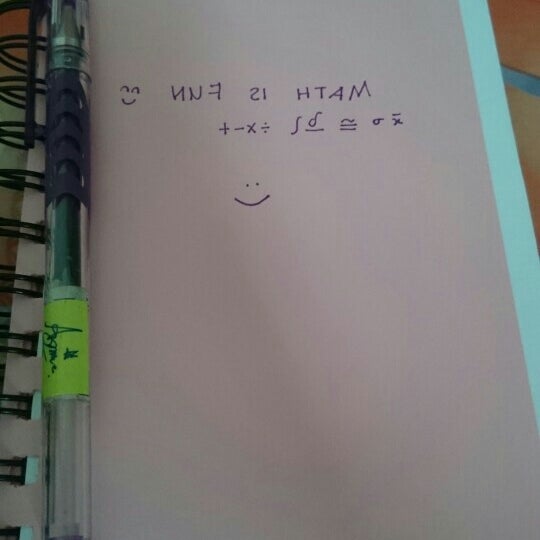 MATH IS FUN
+-x÷ ∫ ∂ ≅ σ x̄